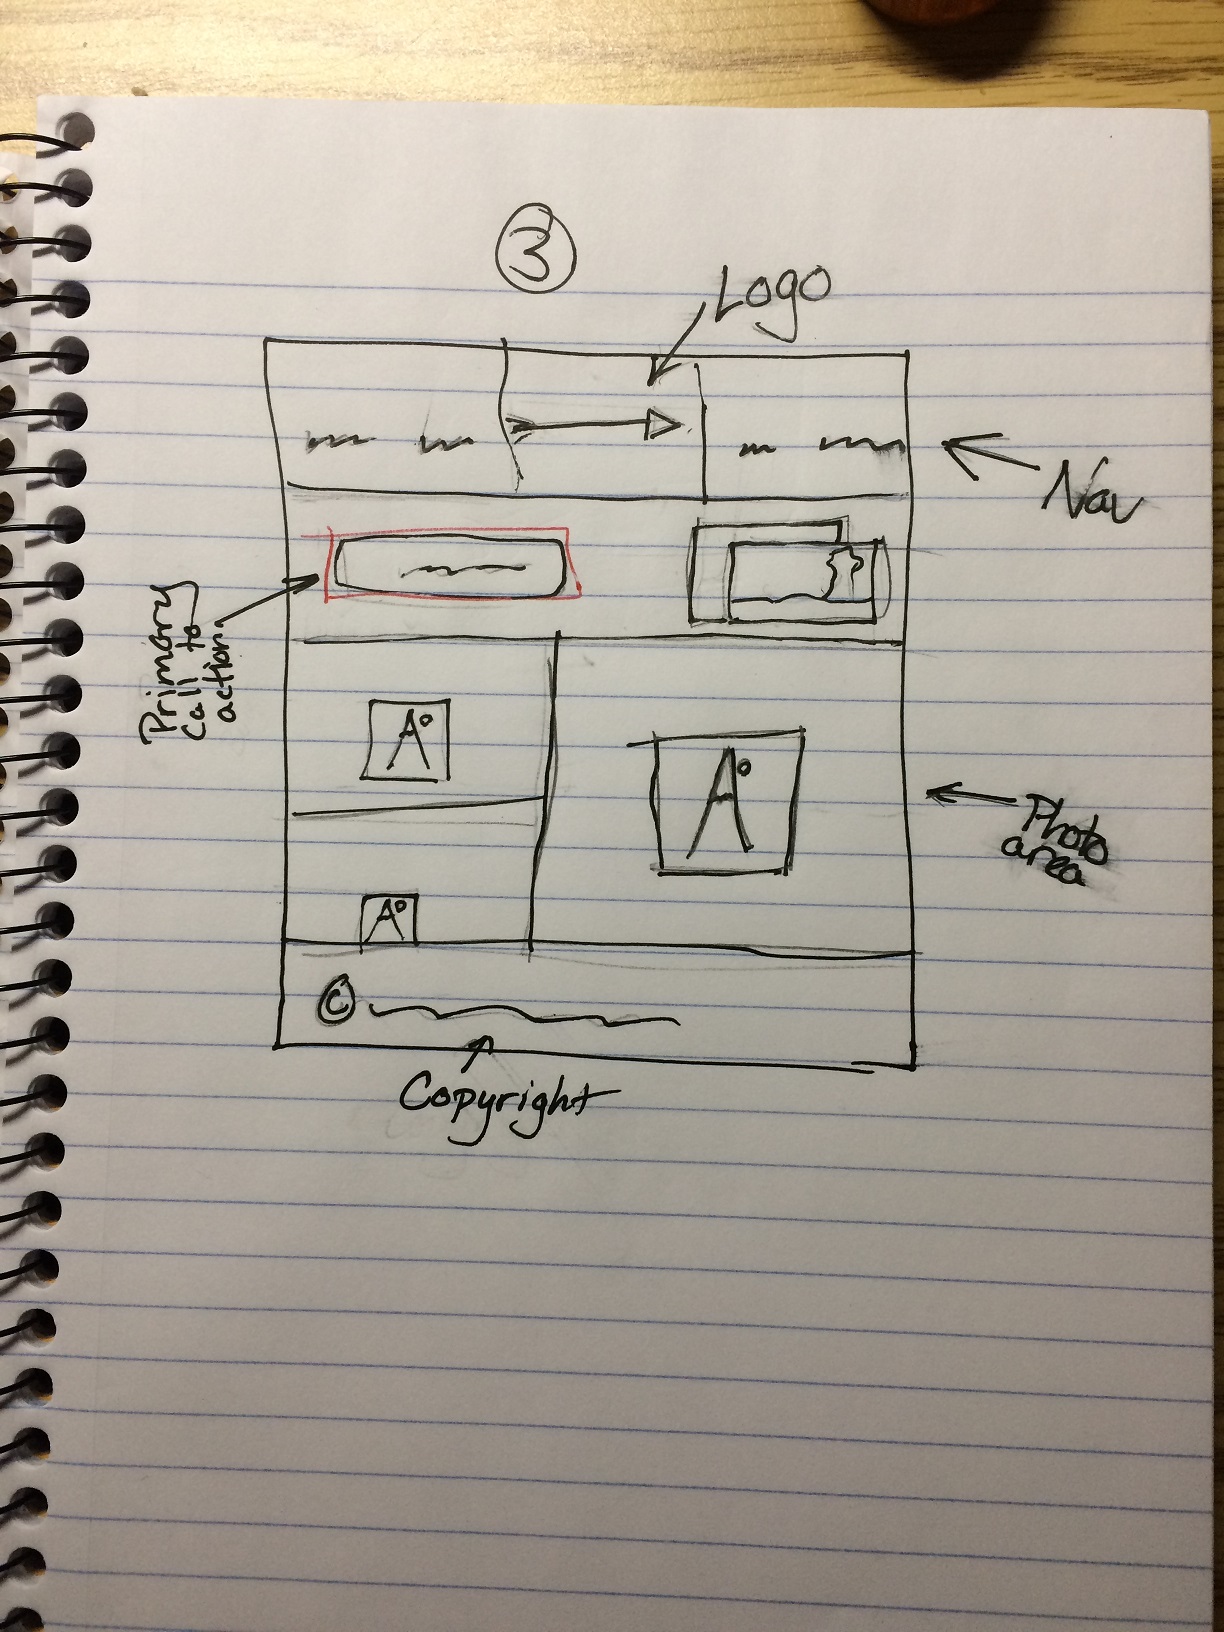 3
Logo
Nav
Primary
Call to
action
A
A
Photo
area
A
©
Copyright